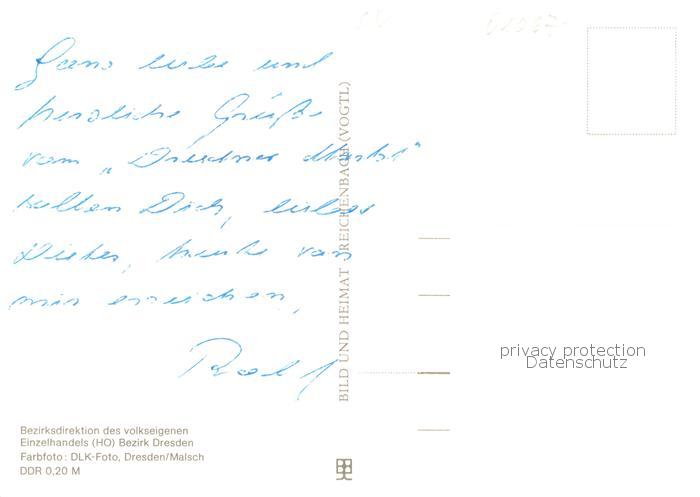 Ganz liebe und
herzliche Grüße
vom „Dresdner Markt“
sollen Dich, liebes
Dieter, heute von
mir erreichen,
Rolf
BILD UND HEIMAT REICHENBACH (VOGTL)
privacy protection
Datenschutz
Bezirksdirektion des volkseigenen
Einzelhandels (HO) Bezirk Dresden
Farbfoto: DLK-Foto, Dresden/Malsch
DDR 0,20 M